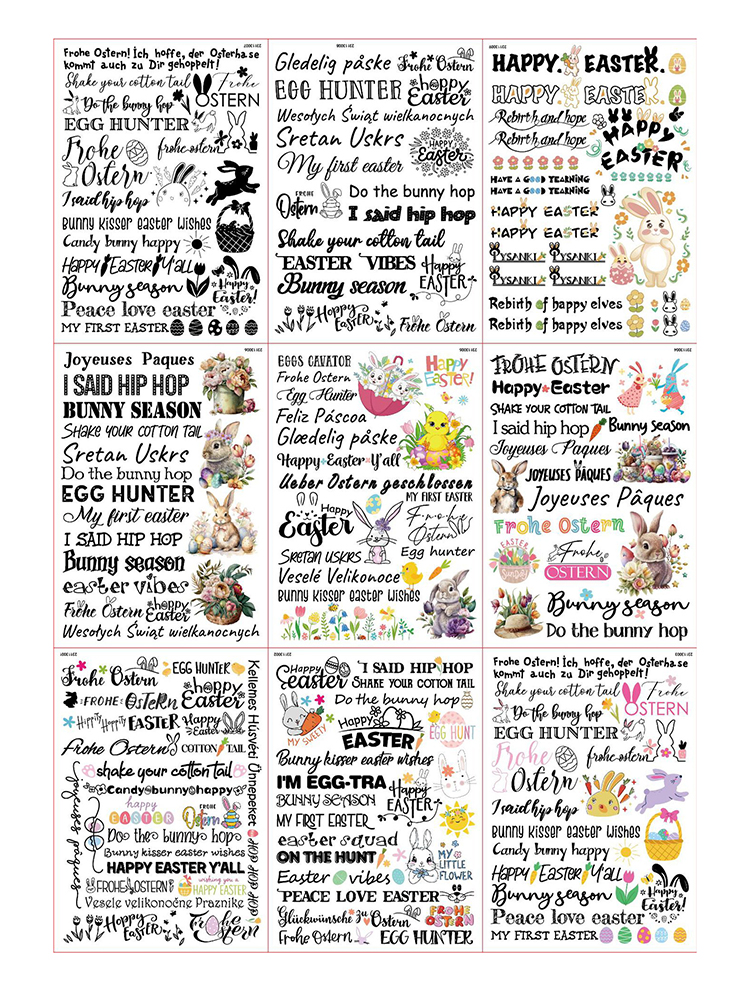 Frohe Ostern! ich hoffe, der Osterhase
kommt auch zu Dir gehoppelt!
Shake your cotton tail
Frohe
OSTERN
Do the bunny hop
EGG HUNTER
Frohe
Ostern
frohe ostern
I said hip hop
Bunny kisser easter wishes
Candy bunny happy
Happy Easter Y'all
Bunny season
Happy
Easter!
Peace love easter
MY FIRST EASTER
Gledelig påske
Frohe Ostern
EGG HUNTER
hoppy
Easter
Wesołych Świąt wielkanocnych
Sretan Uskrs
HAPPY
Easter
My first easter
FROHE
Ostern
Do the bunny hop
I said hip hop
Shake your cotton tail
EASTER VIBES
Happy
EASTER
Bunny season
Hoppy
EASTER
Frohe Ostern
HAPPY. EASTER.
HAPPY. EASTER.
Rebirth and hope
Rebirth and hope
HAPPY
EASTER
HAVE A GOOD YEARNING
HAVE A GOOD YEARNING
HAPPY EASTER
HAPPY EASTER
PYSANKI PYSANKI
PYSANKI PYSANKI
Rebirth of happy elves
Rebirth of happy elves
Joyeuses Paques
I SAID HIP HOP
BUNNY SEASON
SHAKE YOUR COTTON TAIL
Sretan Uskrs
Do the bunny hop
EGG HUNTER
My first easter
I SAID HIP HOP
Bunny season
easter vibes
Frohe Ostern
hoppy
Easter
Wesołych Świąt wielkanocnych
EGGS CAVATOR
HAPPY
EASTER!
Frohe Ostern
Egg Hunter
Feliz Páscoa
Glædelig påske
Happy Easter Y'all
Ueber Ostern geschlossen
MY FIRST EASTER
Happy
Easter
Frohe
Ostern
SRETAN USKRS
Egg hunter
Veselé Velikonoce
Bunny kisser easter wishes
FROHE OSTERN
Happy Easter
SHAKE YOUR COTTON TAIL
I said hip hop
Bunny season
Joyeuses Paques
JOYEUSES PÂQUES
Joyeuses Pâques
Frohe Ostern
EASTER
SUNDAY
Frohe
OSTERN
Bunny season
Do the bunny hop
Frohe Ostern
EGG HUNTER
FROHE OSTERN
hoppy
Easter
Hippity Hoppity EASTER
Happy
Easter
Frohe Ostern
COTTON TAIL
shake your cotton tail
Candy bunny happy
happy
EASTER
FROHE
Ostern
Do the bunny hop
Bunny kisser easter wishes
HAPPY EASTER Y'ALL
FROHE OSTERN
wishing you a
HAPPY EASTER
Vesele velikonočne Praznike
Hoppy
EASTER
Frohe
Ostern
joyeuses pâques
Kellemes Húsvéti Ünnepeket
HOP HOP HOP
Happy
easter
I SAID HIP HOP
SHAKE YOUR COTTON TAIL
Do the bunny hop
MY SWEETY
Happy
EASTER
EGG HUNT
Bunny kisser easter wishes
I'M EGG-TRA
BUNNY SEASON
HAPPY
EASTER
MY FIRST EASTER
easter squad
ON THE HUNT
MY
LITTLE
FLOWER
Easter vibes
PEACE LOVE EASTER
Glückwünsche zu Ostern
FROHE
OSTERN
Frohe Ostern
EGG HUNTER
Frohe Ostern! ich hoffe, der Osterhase
kommt auch zu Dir gehoppelt!
Shake your cotton tail
Frohe
OSTERN
Do the bunny hop
EGG HUNTER
Frohe
Ostern
frohe ostern
I said hip hop
Bunny kisser easter wishes
Candy bunny happy
Happy Easter Y'all
Bunny season
Happy
Easter!
Peace love easter
MY FIRST EASTER